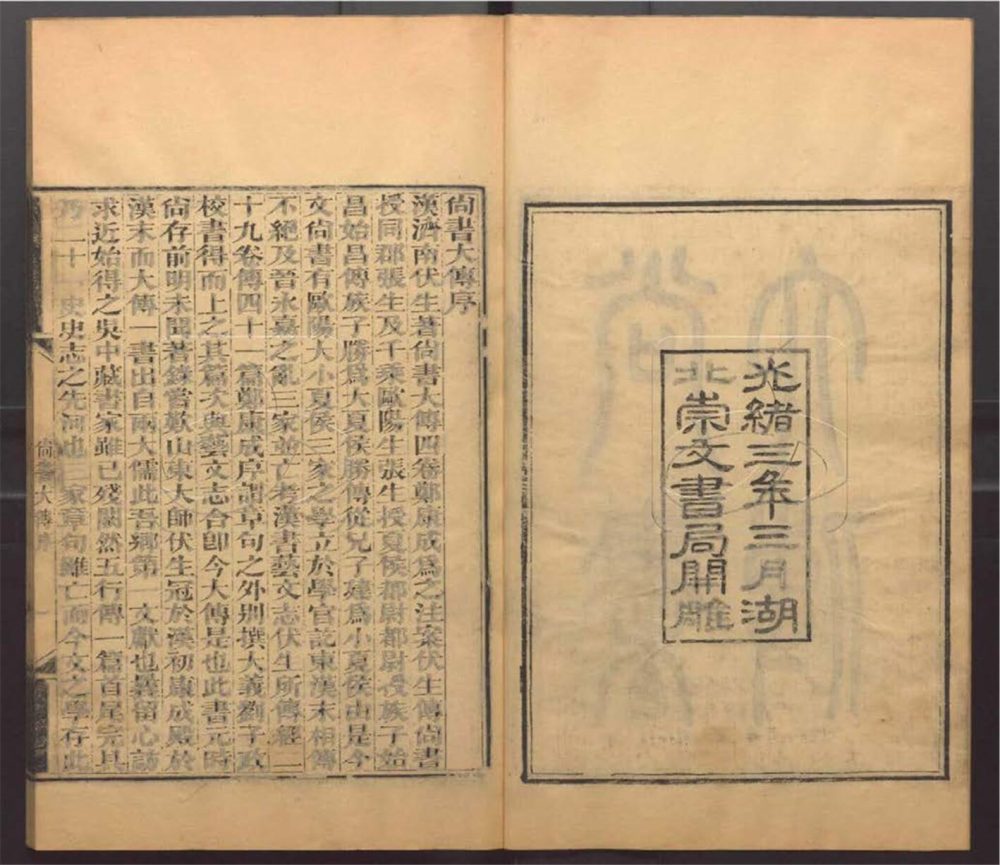 光緒三年三月湖
北崇文書局開雕
尚書大傳序
漢濟南伏生著尚書大傳四卷鄭康成爲之注案伏生傳尚書
授同郡張生及千乘歐陽生張生授夏侯都尉都尉授族子始
昌始昌傳族子勝爲大夏侯勝傳從兄子建爲小夏侯由是今
文尚書有歐陽大小夏侯三家之學立於學官訖東漢末相傳
不絕及晉永嘉之亂三家並亡考漢書藝文志伏生所傳經二
十九卷傳四十一篇鄭康成序謂章句之外別撰大義劉子政
校書得而上之其篇次與藝文志合卽今大傳是也此書元時
尚存前明未聞著錄嘗歎山東大師伏生冠於漢初康成殿於
漢末而大傳一書出自兩大儒此吾鄉第一文獻也曩留心訪
求近始得之吳中藏書家雖已殘闕然五行傳一篇首尾完具
乃二十一史史志之先河也三家章句雖亡而今文之學存此
尚書大傳序
一